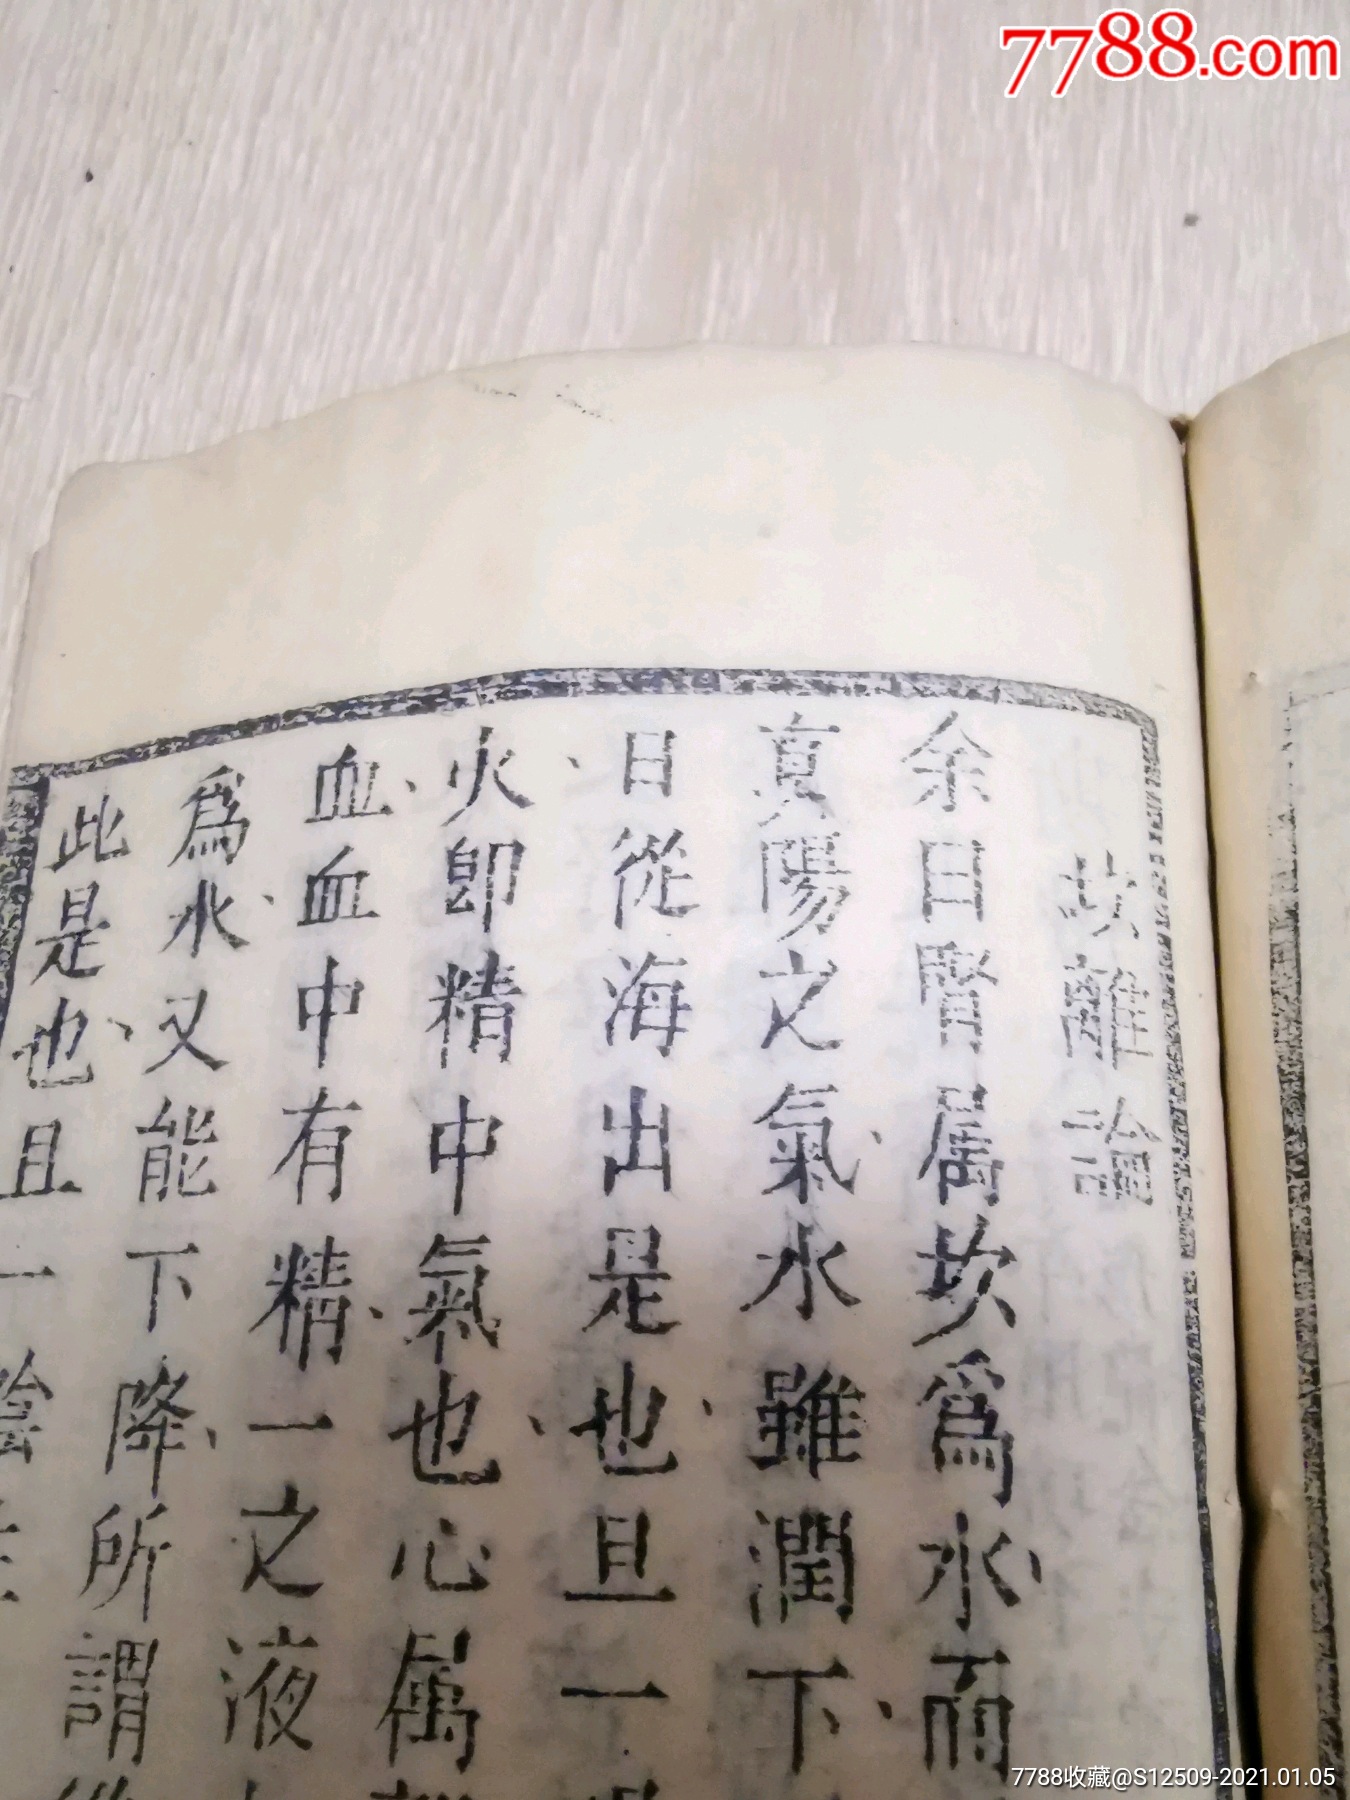 7788.com
余曰腎屬坎爲水而
真陽之氣水雖潤下
日從海出是也且一
火卽精中氣也心屬
血血中有精一之液
爲水又能下降所謂
此是也且一陰
7788收藏@S12509-2021.01.05